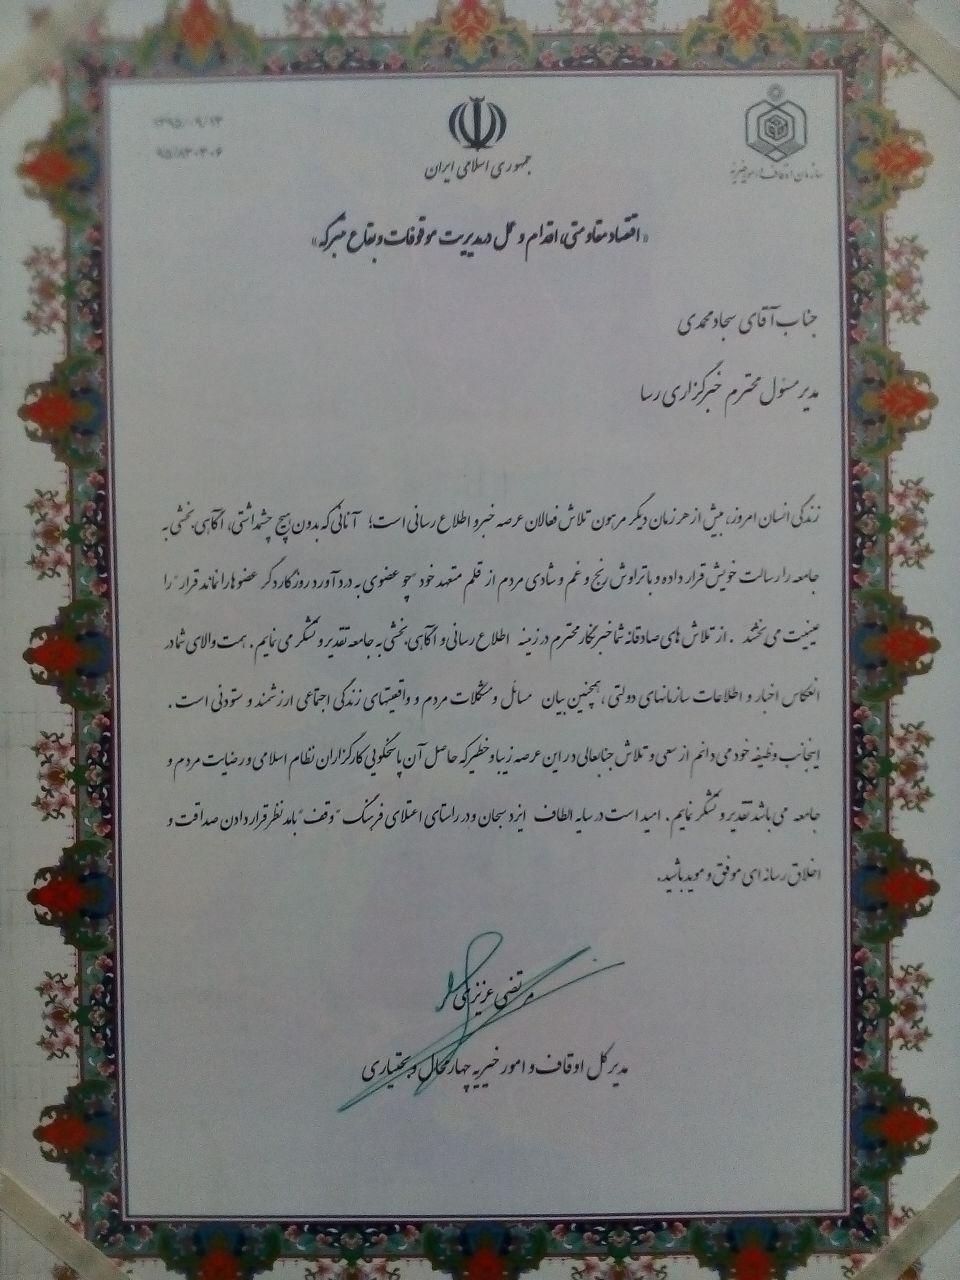 ۱۳۹۵/۰۹/۱۳
۹۵/۸۳۰۴۰۶
جمهوری اسلامی ایران
سازمان اوقاف و امور خیریه
«اقتصاد مقاومتی، اقدام و عمل در مدیریت موقوفات و بقاع متبرکه»
جناب آقای سجاد محمدی
مدیر مسئول محترم خبرگزاری رسا
زندگی انسان امروز، بیش از هر زمان دیگر مرهون تلاش فعالان عرصه خبر و اطلاع رسانی است؛ آنانی که بدون هیچ چشمداشتی، آگاهی بخشی به
جامعه را رسالت خویش قرار داده و با تراوش رنج و غم و شادی مردم از قلم متعهد خود "چو عضوی به درد آورد روزگار دگر عضوها را نماند قرار" را
عینیت می بخشند . از تلاش های صادقانه شما خبرنگار محترم در زمینه اطلاع رسانی و آگاهی بخشی به جامعه تقدیر و تشکر می نمایم. همت والای شما در
انعکاس اخبار و اطلاعات سازمانهای دولتی ، همچنین بیان مسائل و مشکلات مردم و واقعیتهای زندگی اجتماعی ارزشمند و ستودنی است .
اینجانب وظیفه خود می دانم از سعی و تلاش جنابعالی در این عرصه زیبا و خطیر که حاصل آن پاسخگویی کارگزاران نظام اسلامی و رضایت مردم و
جامعه می باشد تقدیر و تشکر نمایم. امید است در سایه الطاف ایزد سبحان و در راستای اعتلای فرهنگ "وقف" با مد نظر قرار دادن صداقت و
اخلاق رسانه ای موفق و موید باشید.
مرتضی عزیزی
مدیر کل اوقاف و امور خیریه چهارمحال و بختیاری